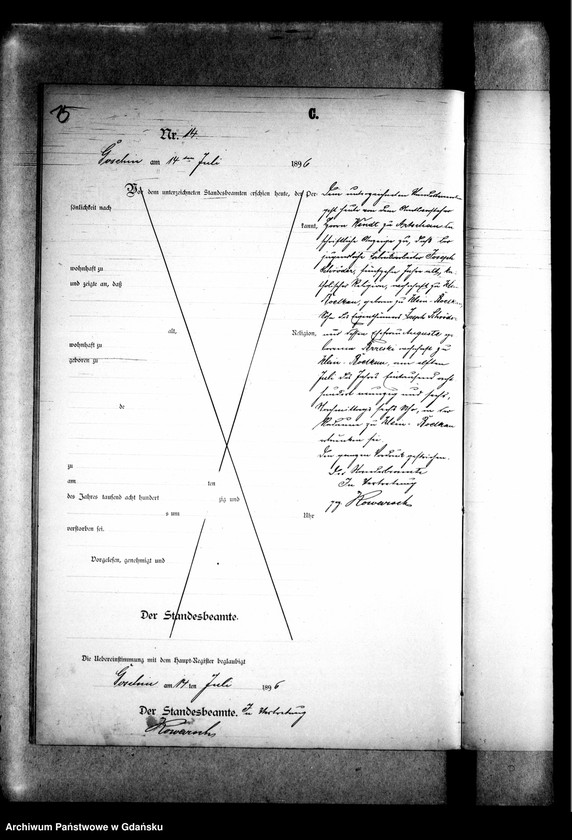 15
C.
Nr. 14
Goschin am 14ten Juli 1896
Vor dem unterzeichneten Standesbeamten erschien heute, der Per-
sönlichkeit nach
kannt,
wohnhaft zu
und zeigte an, daß
alt, Religion,
wohnhaft zu
geboren zu
de
zu
am ten
des Jahres tausend acht hundert zig und
s um Uhr
verstorben sei.
Vorgelesen, genehmigt und
Der Standesbeamte.
Dem unterzeichneten Standesbeamten
heute von dem
Herrn Wendt zu
schriftliche Anzeige zu, daß der
Joseph
Schröder, fünfzehn Jahre alt, ka-
tholischer Religion, wohnhaft zu Klein-
Roelkau, geboren zu Klein-Roelkau,
Sohn des Eigenthümers Joseph Schröder
und dessen Ehefrau Auguste ge-
borene wohnhaft zu
Klein-Roelkau, am elften
Juli des Jahres Eintausend acht
hundert neunzig und sechs,
Nachmittags sechs Uhr, in der
Radaune zu Klein-Roelkau
ertrunken sei.
Die ganzen Vordruck gestrichen.
Der Standesbeamte
In Vertretung
gez Kowarsch
Die Uebereinstimmung mit dem Haupt-Register beglaubigt
Goschin am 14 ten Juli 1896
Der Standesbeamte. In Vertretung
Kowarsch
Archiwum Państwowe w Gdańsku